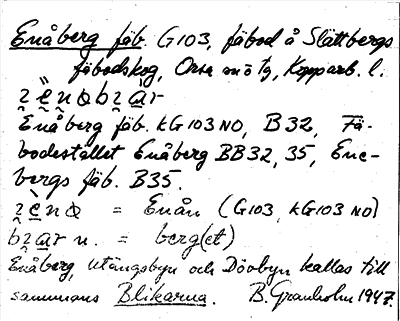 Enåberg fäb. G103, fäbod å Slättbergs
fäbodskog, Orsa sn o tg, Kopparb. l.
Enåberg fäb. kG103 NO, B32, Fä-
bodestället Enåberg BB32, 35, Ene-
bergs fäb. B35.
= Enån (G103, kG103 NO)
n. = berg(et)
Enåberg, Utängsbyn och Dövbyn kallas till
sammans Blikarna. B. Granholm 1947.